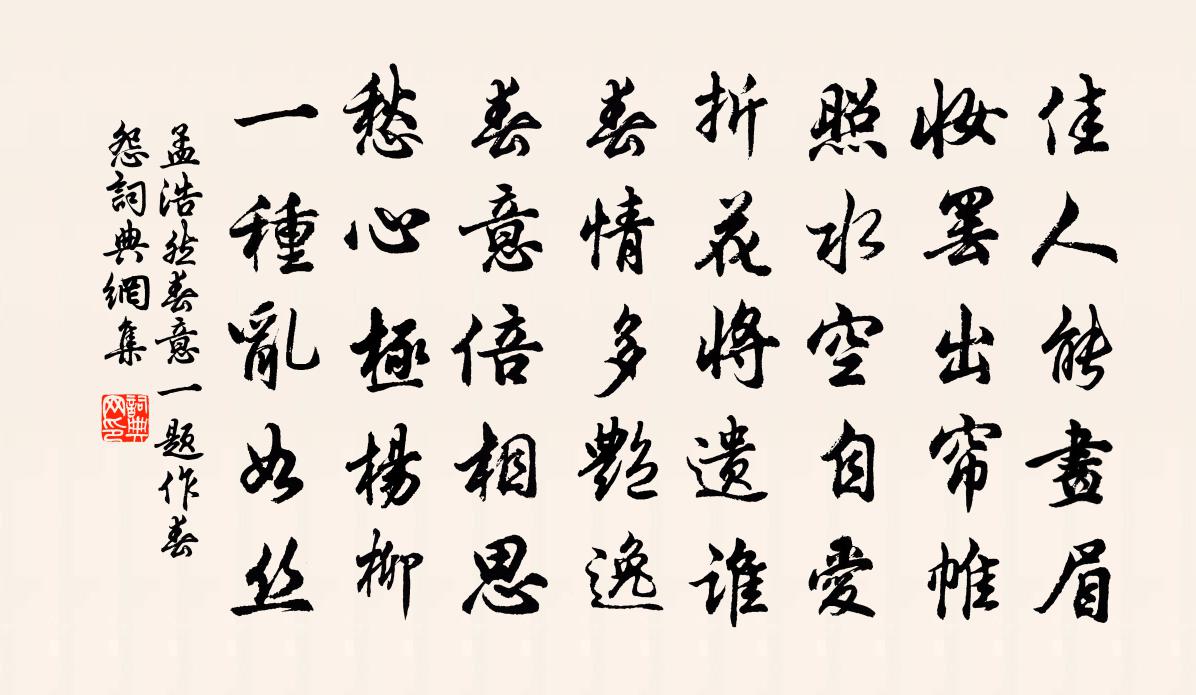 佳人能畫眉
妝罷出帘帷
照水空自愛
折花將遺誰
春情多艷逸
春意倍相思
愁心極楊柳
一種亂如丝
孟浩然春意一题作春
怨詞典網集
詞典
网印